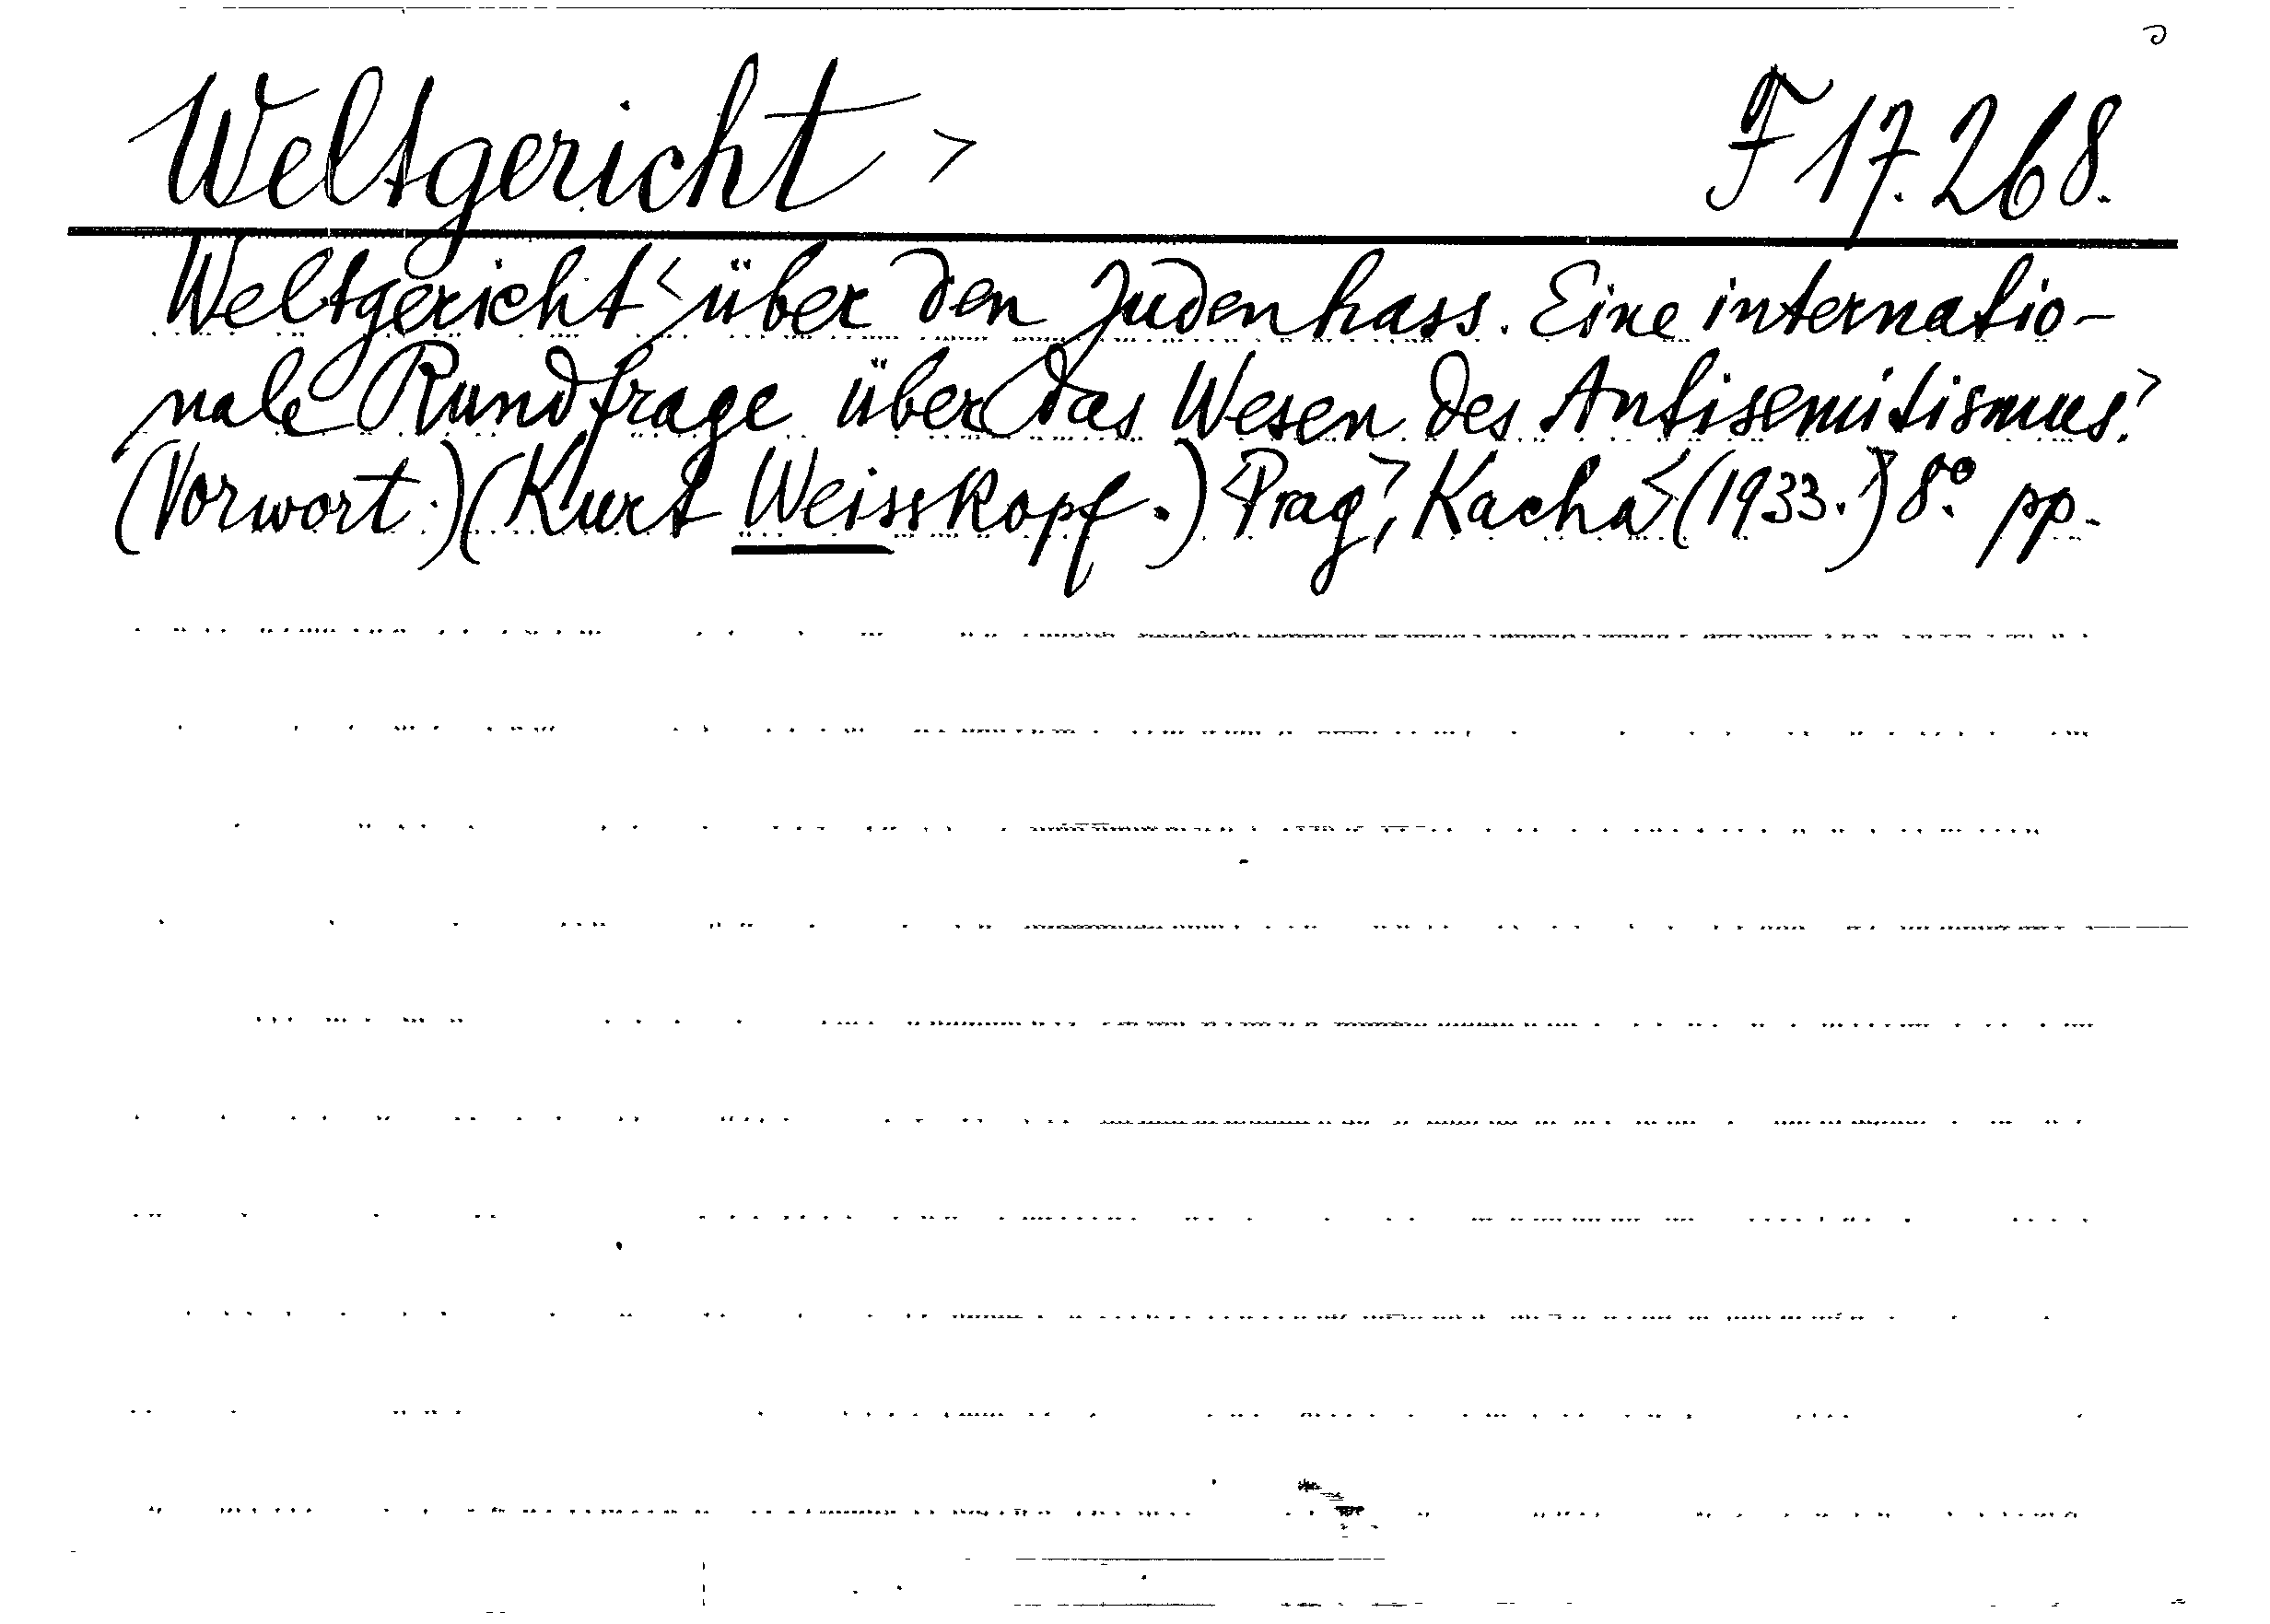 Weltgericht > F 17.268.
Weltgericht < über den Judenhass. Eine internatio-
nale Rundfrage über das Wesen des Antisemitismus. >
(Vorwort:) (Kurt Weisskopf.) < Prag >, Kacha < (1933.) > 8°. pp.